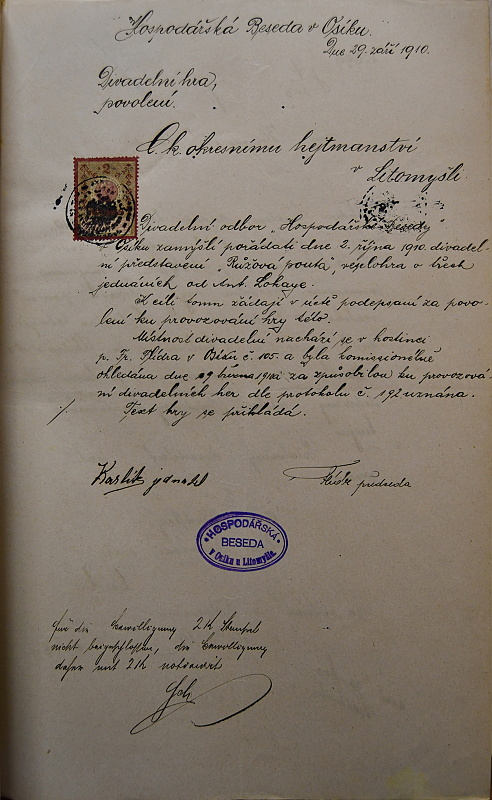 Hospodářská Beseda v Osíku.
Dne 29. září 1910.
Divadelní hra,
povolení.
C. k. okresnímu hejtmanství
v Litomyšli.
Divadelní odbor „Hospodářské Besedy"
v Osíku zamýšlí pořádati dne 2. října 1910. divadel-
ní představení „Růžová pouta", veselohra o třech
jednáních od Ant. Lokaye.
K cíli tomu žádají v úctě podepsaní za povo-
lení ku provozování hry této.
Místnost divadelní nachází se v hostinci
p. Fr. v Osíku č. 105. a byla komisionelně
ohledána dne 29 března 1910 a za způsobilou ku provozová-
ní divadelních her dle protokolu č. 192 uznána.
Text hry se přikládá.
Karlík jednatel
předseda
HOSPODÁŘSKÁ
BESEDA
v Osíku u Litomyšle.
für die Bewilligung 2 K Stempel
nicht beigeschlossen, die Bewilligung
daher mit 2 K